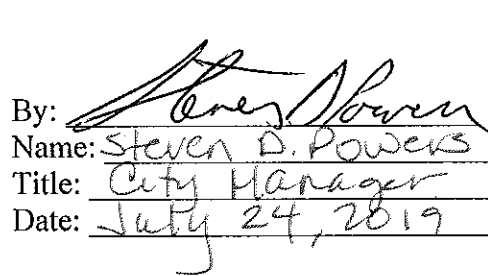 By: Steven D Powers
Name: Steven D. Powers
Title: City Manager
Date: July 24, 2019